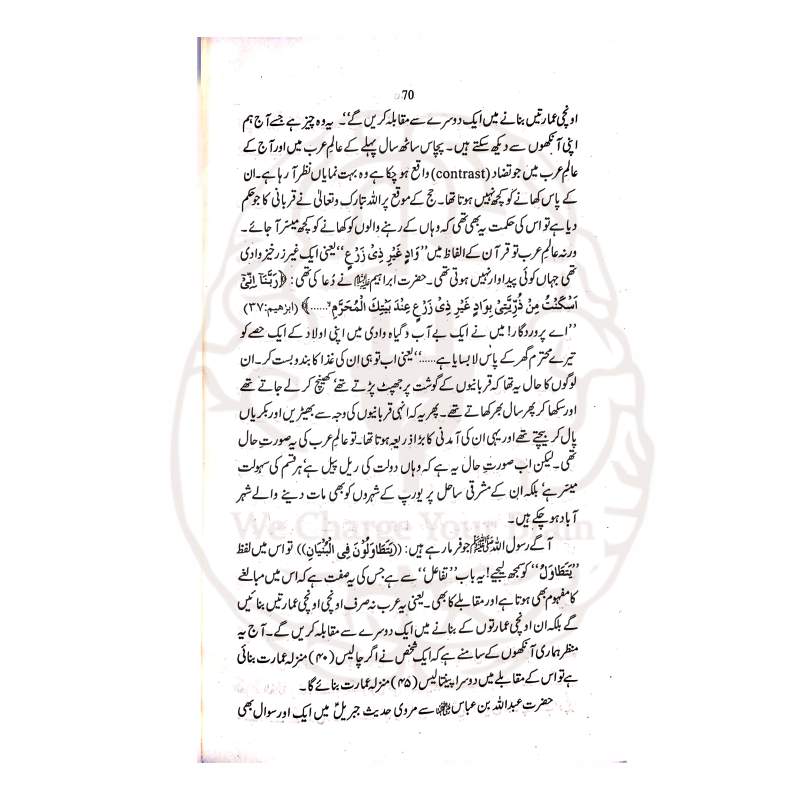 70
اونچی عمارتیں بنانے میں ایک دوسرے سے مقابلہ کریں گے‘‘۔ یہ وہ چیز ہے جسے آج ہم
اپنی آنکھوں سے دیکھ سکتے ہیں۔ پچاس ساٹھ سال پہلے کے عالم عرب میں اور آج کے
عالم عرب میں جو تضاد (contrast) واقع ہو چکا ہے وہ بہت نمایاں نظر آ رہا ہے۔ ان
کے پاس کھانے کو کچھ نہیں ہوتا تھا۔ حج کے موقع پر اللہ تبارک وتعالیٰ نے قربانی کا جو حکم
دیا ہے تو اس کی حکمت یہ بھی تھی کہ وہاں کے رہنے والوں کو کھانے کو کچھ میسّر آ جائے۔
ورنہ عالم عرب تو قرآن کے الفاظ میں ’’وَادٍ غَيْرِ ذِيْ زَرْعٍ‘‘ یعنی ایک غیر زرخیز وادی
تھی جہاں کوئی پیداوار نہیں ہوتی تھی۔ حضرت ابراہیم علیہ السلام نے دُعا کی تھی: ﴿رَبَّنَآ اِنِّيْٓ
اَسْكَنْتُ مِنْ ذُرِّيَّتِيْ بِوَادٍ غَيْرِ ذِيْ زَرْعٍ عِنْدَ بَيْتِكَ الْمُحَرَّمِ ......﴾ (ابرٰھیم:۳۷)
’’اے پروردگار! میں نے ایک بے آب و گیاہ وادی میں اپنی اولاد کے ایک حصے کو
تیرے محترم گھر کے پاس لا بسایا ہے......‘‘ یعنی اب تو ہی ان کی غذا کا بندوبست کر۔ ان
لوگوں کا حال یہ تھا کہ قربانیوں کے گوشت پر جھپٹ پڑتے تھے‘ کھینچ کر لے جاتے تھے
اور سکھا کر پھر سال بھر کھاتے تھے۔ پھر یہ کہ انہی قربانیوں کی وجہ سے بھیڑیں اور بکریاں
پال کر بیچتے تھے اور یہی ان کی آمدنی کا بڑا ذریعہ ہوتا تھا۔ تو عالم عرب کی یہ صورتِ حال
تھی۔ لیکن اب صورتِ حال یہ ہے کہ وہاں دولت کی ریل پیل ہے‘ ہر قسم کی سہولت
میسّر ہے‘ بلکہ ان کے مشرقی ساحل پر یورپ کے شہروں کو بھی مات دینے والے شہر
آباد ہو چکے ہیں۔
We Charge Your Brain
آگے رسول اللہ ﷺ جو فرما رہے ہیں: ((يَتَطَاوَلُوْنَ فِي الْبُنْيَانِ)) تو اس میں لفظ
’’يَتَطَاوَلُ‘‘ کو سمجھ لیجیے! یہ باب ’’تفاعل‘‘ سے ہے جس کی یہ صفت ہے کہ اس میں مبالغے
کا مفہوم بھی ہوتا ہے اور مقابلے کا بھی۔ یعنی یہ عرب نہ صرف اونچی اونچی عمارتیں بنائیں
گے بلکہ ان اونچی عمارتوں کے بنانے میں ایک دوسرے سے مقابلہ کریں گے۔ آج یہ
منظر ہماری آنکھوں کے سامنے ہے کہ ایک شخص نے اگر چالیس (۴۰) منزلہ عمارت بنائی
ہے تو اس کے مقابلے میں دوسرا پینتالیس (۴۵) منزلہ عمارت بنائے گا۔
حضرت عبداللہ بن عباس رضی اللہ عنہما سے مروی حدیث جبریلؑ میں ایک اور سوال بھی